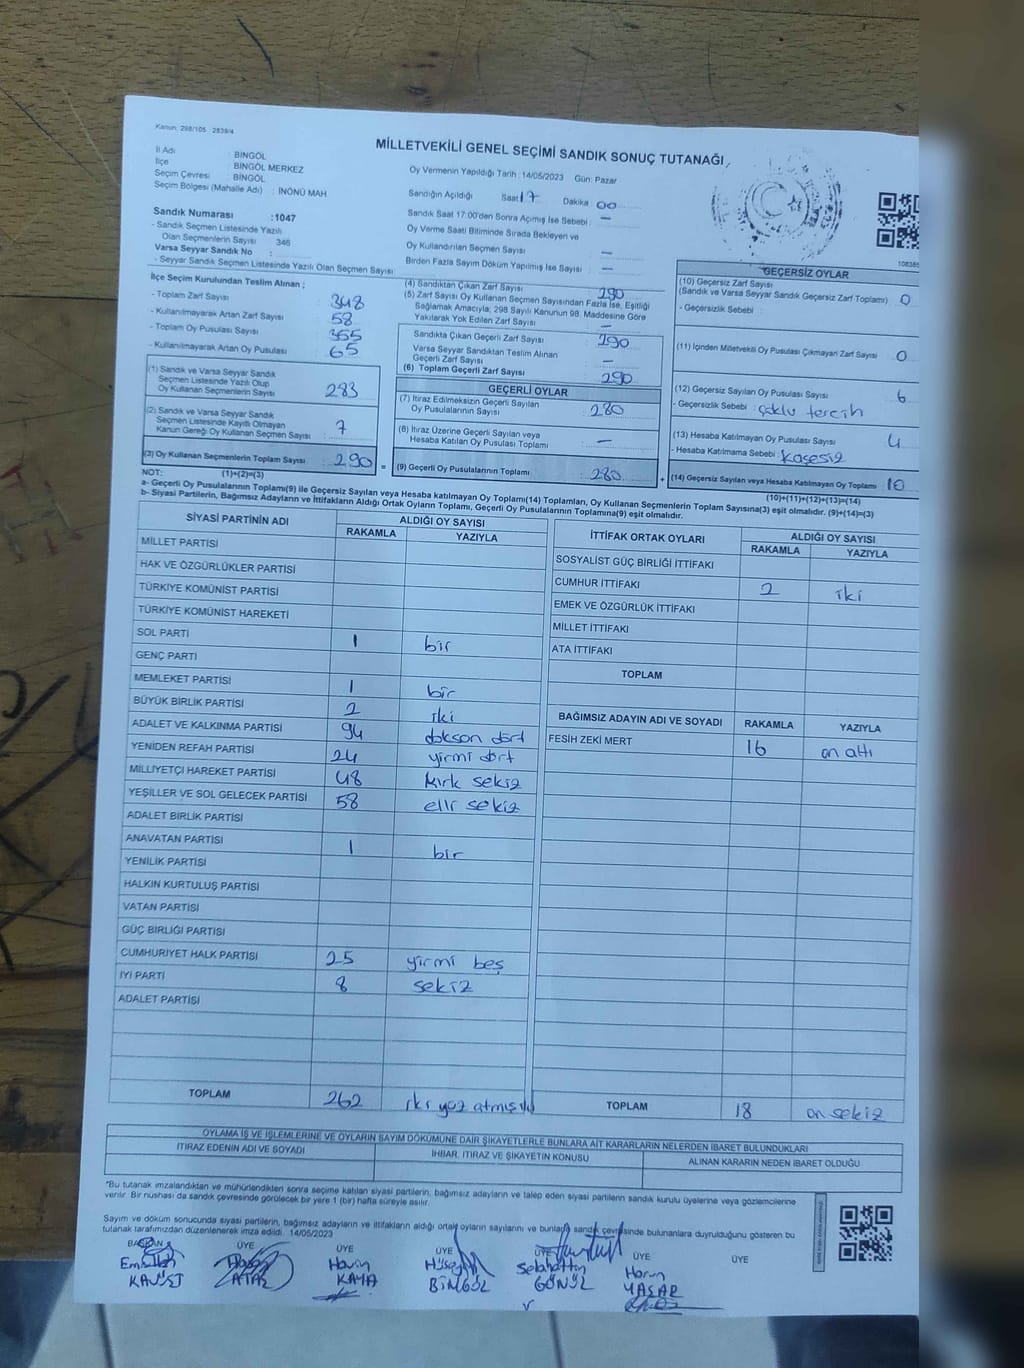 Kanun: 298/105 2839/4
MİLLETVEKİLİ GENEL SEÇİMİ SANDIK SONUÇ TUTANAĞI
İl Adı : BİNGÖL
İlçe : BİNGÖL MERKEZ
Seçim Çevresi : BİNGÖL
Seçim Bölgesi (Mahalle Adı) : İNÖNÜ MAH
Sandık Numarası :1047
- Sandık Seçmen Listesinde Yazılı
Olan Seçmenlerin Sayısı 346
Varsa Seyyar Sandık No :
- Seyyar Sandık Seçmen Listesinde Yazılı Olan Seçmen Sayısı
Oy Vermenin Yapıldığı Tarih : 14/05/2023 Gün: Pazar
Sandığın Açıldığı Saat 17 Dakika 00
Sandık Saat 17:00'den Sonra Açımış İse Sebebi : —
Oy Verme Saati Bitiminde Sırada Bekleyen ve
Oy Kullandırılan Seçmen Sayısı : —
Birden Fazla Sayım Döküm Yapılmış İse Sayısı : —
İlçe Seçim Kurulundan Teslim Alınan ;
- Toplam Zarf Sayısı : 348
- Kullanılmayarak Artan Zarf Sayısı : 58
- Toplam Oy Pusulası Sayısı : 355
- Kullanılmayarak Artan Oy Pusulası : 65
(1) Sandık ve Varsa Seyyar Sandık
Seçmen Listesinde Yazılı Olup
Oy Kullanan Seçmenlerin Sayısı : 283
(2) Sandık ve Varsa Seyyar Sandık
Seçmen Listesinde Kayıtlı Olmayan
Kanun Gereği Oy Kullanan Seçmen Sayısı : 7
(3) Oy Kullanan Seçmenlerin Toplam Sayısı : 290
(4) Sandıktan Çıkan Zarf Sayısı : 290
(5) Zarf Sayısı Oy Kullanan Seçmen Sayısından Fazla İse, Eşitliği
Sağlamak Amacıyla; 298 Sayılı Kanunun 98. Maddesine Göre
Yakılarak Yok Edilen Zarf Sayısı : —
Sandıkta Çıkan Geçerli Zarf Sayısı : 290
Varsa Seyyar Sandıktan Teslim Alınan
Geçerli Zarf Sayısı : —
(6) Toplam Geçerli Zarf Sayısı : 290
GEÇERLİ OYLAR
(7) İtiraz Edilmeksizin Geçerli Sayılan
Oy Pusulalarının Sayısı : 280
(8) İtiraz Üzerine Geçerli Sayılan veya
Hesaba Katılan Oy Pusulası Toplamı : —
= (9) Geçerli Oy Pusulalarının Toplamı : 280
108385
GEÇERSİZ OYLAR
(10) Geçersiz Zarf Sayısı : 0
(Sandık ve Varsa Seyyar Sandık Geçersiz Zarf Toplamı)
- Geçersizlik Sebebi :
(11) İçinden Milletvekili Oy Pusulası Çıkmayan Zarf Sayısı : 0
(12) Geçersiz Sayılan Oy Pusulası Sayısı : 6
- Geçersizlik Sebebi : çoklu tercih
(13) Hesaba Katılmayan Oy Pusulası Sayısı : 4
- Hesaba Katılmama Sebebi : Kaşesiz
+ (14) Geçersiz Sayılan veya Hesaba Katılmayan Oy Toplamı : 10
NOT: (1)+(2)=(3)
(10)+(11)+(12)+(13)=(14)
a- Geçerli Oy Pusulalarının Toplamı(9) ile Geçersiz Sayılan veya Hesaba katılmayan Oy Toplamı(14) Toplamları, Oy Kullanan Seçmenlerin Toplam Sayısına(3) eşit olmalıdır. (9)+(14)=(3)
b- Siyasi Partilerin, Bağımsız Adayların ve İttifakların Aldığı Ortak Oyların Toplamı, Geçerli Oy Pusulalarının Toplamına(9) eşit olmalıdır.
SİYASİ PARTİNİN ADI ALDIĞI OY SAYISI
RAKAMLA YAZIYLA
MİLLET PARTİSİ
HAK VE ÖZGÜRLÜKLER PARTİSİ
TÜRKİYE KOMÜNİST PARTİSİ
TÜRKİYE KOMÜNİST HAREKETİ
SOL PARTİ 1 bir
GENÇ PARTİ
MEMLEKET PARTİSİ 1 bir
BÜYÜK BİRLİK PARTİSİ 2 iki
ADALET VE KALKINMA PARTİSİ 94 dokson dört
YENİDEN REFAH PARTİSİ 24 yirmi dört
MİLLİYETÇİ HAREKET PARTİSİ 48 kırk sekiz
YEŞİLLER VE SOL GELECEK PARTİSİ 58 elli sekiz
ADALET BİRLİK PARTİSİ
ANAVATAN PARTİSİ 1 bir
YENİLİK PARTİSİ
HALKIN KURTULUŞ PARTİSİ
VATAN PARTİSİ
GÜÇ BİRLİĞİ PARTİSİ
CUMHURİYET HALK PARTİSİ 25 yirmi beş
İYİ PARTİ 8 sekiz
ADALET PARTİSİ
TOPLAM 262 iki yüz atmış iki
İTTİFAK ORTAK OYLARI ALDIĞI OY SAYISI
RAKAMLA YAZIYLA
SOSYALİST GÜÇ BİRLİĞİ İTTİFAKI
CUMHUR İTTİFAKI 2 iki
EMEK VE ÖZGÜRLÜK İTTİFAKI
MİLLET İTTİFAKI
ATA İTTİFAKI
TOPLAM
BAĞIMSIZ ADAYIN ADI VE SOYADI RAKAMLA YAZIYLA
FESİH ZEKİ MERT 16 on altı
TOPLAM 18 on sekiz
OYLAMA İŞ VE İŞLEMLERİNE VE OYLARIN SAYIM DÖKÜMÜNE DAİR ŞİKAYETLERLE BUNLARA AİT KARARLARIN NELERDEN İBARET BULUNDUKLARI
İTİRAZ EDENİN ADI VE SOYADI İHBAR, İTİRAZ VE ŞİKAYETİN KONUSU ALINAN KARARIN NEDEN İBARET OLDUĞU
"Bu tutanak imzalandıktan ve mühürlendikten sonra seçime katılan siyasi partilerin, bağımsız adayların ve talep eden siyasi partilerin sandık kurulu üyelerine veya gözlemcilerine
verilir. Bir nüshası da sandık çevresinde görülecek bir yere 1 (bir) hafta süreyle asılır.
Sayım ve döküm sonucunda siyasi partilerin, bağımsız adayların ve ittifakların aldığı ortak oyların sayılarını ve bunların sandık çevresinde bulunanlara duyrulduğunu gösteren bu
tutanak tarafımızdan düzenlenerek imza edildi. 14/05/2023
BAŞKAN ÜYE ÜYE ÜYE ÜYE ÜYE ÜYE
Havin Selahattin Harun
ATAŞ KAYA BİNGÖL GÖNÜL YAŞAR